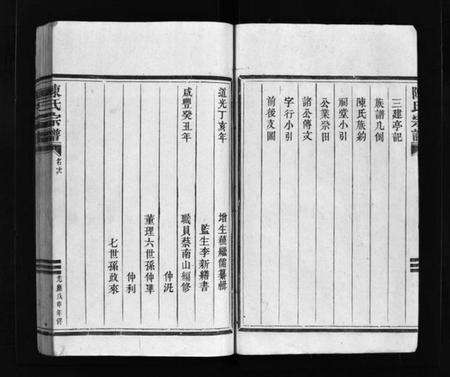 陳氏宗譜
三建亭記
族譜凡例
陳氏族約
祠堂小引
公業祭田
諸公傳文
字行小引
前後支圖
道光丁亥年
增生蔡繼儒纂輯
監生李新繕書
咸豐癸丑年
職員蔡南山編修
仲汜
董理六世孫仲軍
仲利
七世孫啟來
陳氏宗譜
名次
光緒戊申年修